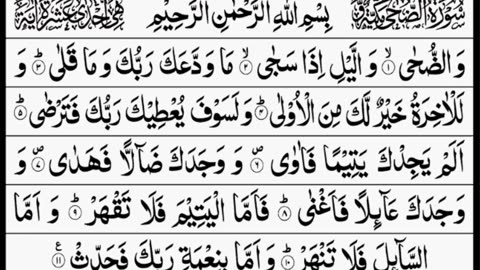 سُوْرَةُ الضُّحٰى مَكِّيَّةٌ بِسْمِ اللهِ الرَّحْمٰنِ الرَّحِيْمِ هِيَ اِحْدٰى عَشْرَةَ اٰيَةً
وَ الضُّحٰى ۙ﴿۱﴾ وَ الَّيْلِ اِذَا سَجٰى ۙ﴿۲﴾ مَا وَدَّعَكَ رَبُّكَ وَ مَا قَلٰى ؕ﴿۳﴾ وَ
لَلْاٰخِرَةُ خَيْرٌ لَّكَ مِنَ الْاُوْلٰى ؕ﴿۴﴾ وَ لَسَوْفَ يُعْطِيْكَ رَبُّكَ فَتَرْضٰى ؕ﴿۵﴾
اَلَمْ يَجِدْكَ يَتِيْمًا فَاٰوٰى ۪﴿۶﴾ وَ وَجَدَكَ ضَآلًّا فَهَدٰى ۪﴿۷﴾ وَ
وَجَدَكَ عَآىِٕلًا فَاَغْنٰى ؕ﴿۸﴾ فَاَمَّا الْيَتِيْمَ فَلَا تَقْهَرْ ؕ﴿۹﴾ وَ اَمَّا
السَّآىِٕلَ فَلَا تَنْهَرْ ؕ﴿۱۰﴾ وَ اَمَّا بِنِعْمَةِ رَبِّكَ فَحَدِّثْ ﴿۱۱﴾ ع